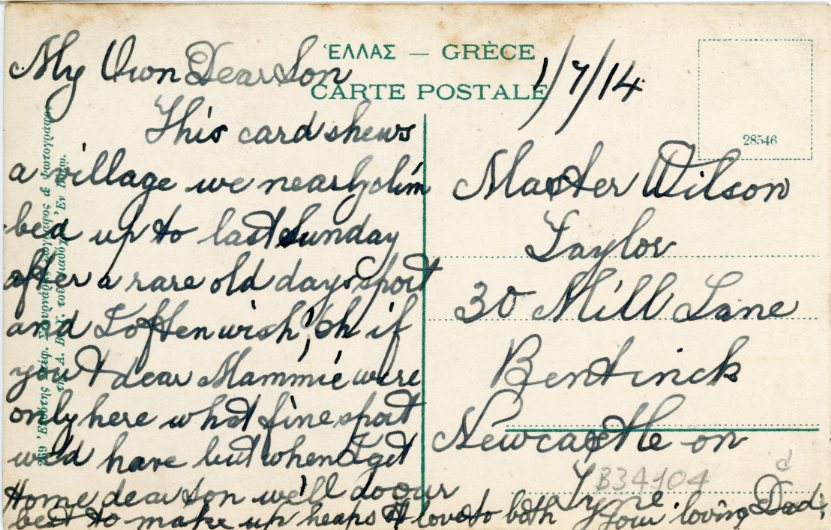 ἙΛΛΑΣ — GRÈCE
CARTE POSTALE
28546
1/7/14
My Own Dear Son
This card shews
a village we nearly clim
bed up to last Sunday
after a rare old days sport
and I often wish, oh if
you & dear Mammie were
only here what fine sport
we'd have but when I get
Home dear son we'll do our
best to make up heaps of love to both your loving Dad.
Master Wilson
Taylor
30 Mill Lane
Bentinck
Newcastle on
Tyne.
B34104
d